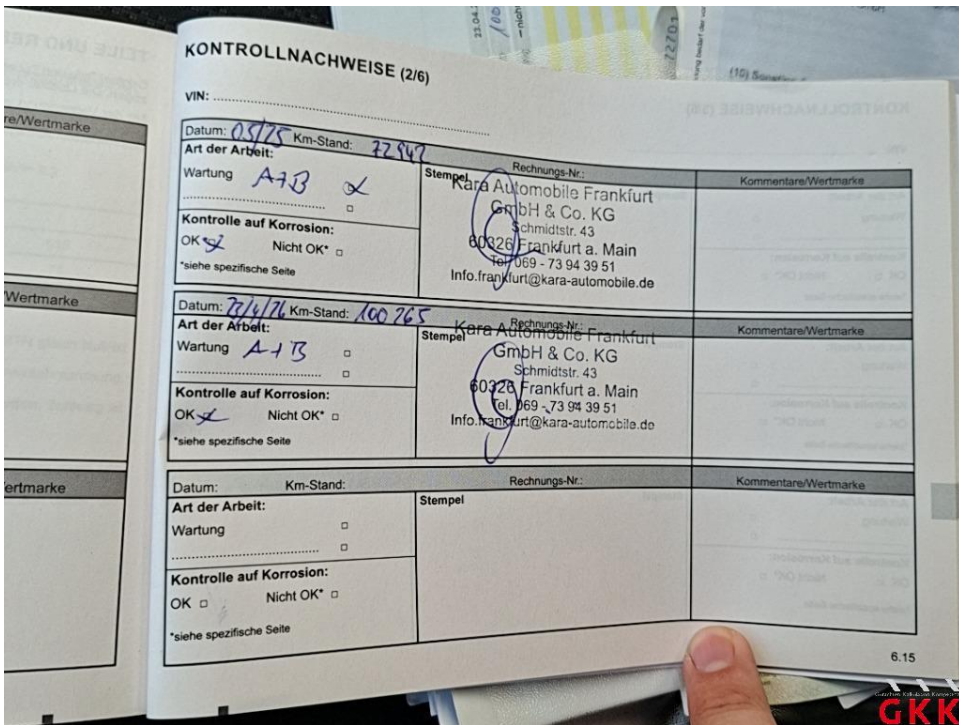 KONTROLLNACHWEISE (2/6)
VIN:
re/Wertmarke
Datum: 05/25 Km-Stand: 72942
Rechnungs-Nr.:
Kommentare/Wertmarke
Art der Arbeit:
Wartung A+B
Kontrolle auf Korrosion:
OK Nicht OK*
*siehe spezifische Seite
Stempel
Kara Automobile Frankfurt
GmbH & Co. KG
Schmidtstr. 43
60326 Frankfurt a. Main
Tel. 069 - 73 94 39 51
Info.frankfurt@kara-automobile.de
Wertmarke
Datum: Km-Stand: 100265
Rechnungs-Nr.:
Kommentare/Wertmarke
Art der Arbeit:
Wartung A+B
Kontrolle auf Korrosion:
OK Nicht OK*
*siehe spezifische Seite
Stempel
Kara Automobile Frankfurt
GmbH & Co. KG
Schmidtstr. 43
60326 Frankfurt a. Main
Tel. 069 - 73 94 39 51
Info.frankfurt@kara-automobile.de
ertmarke
Datum: Km-Stand:
Rechnungs-Nr.:
Kommentare/Wertmarke
Art der Arbeit:
Wartung
Kontrolle auf Korrosion:
OK Nicht OK*
*siehe spezifische Seite
Stempel
6.15
GKK